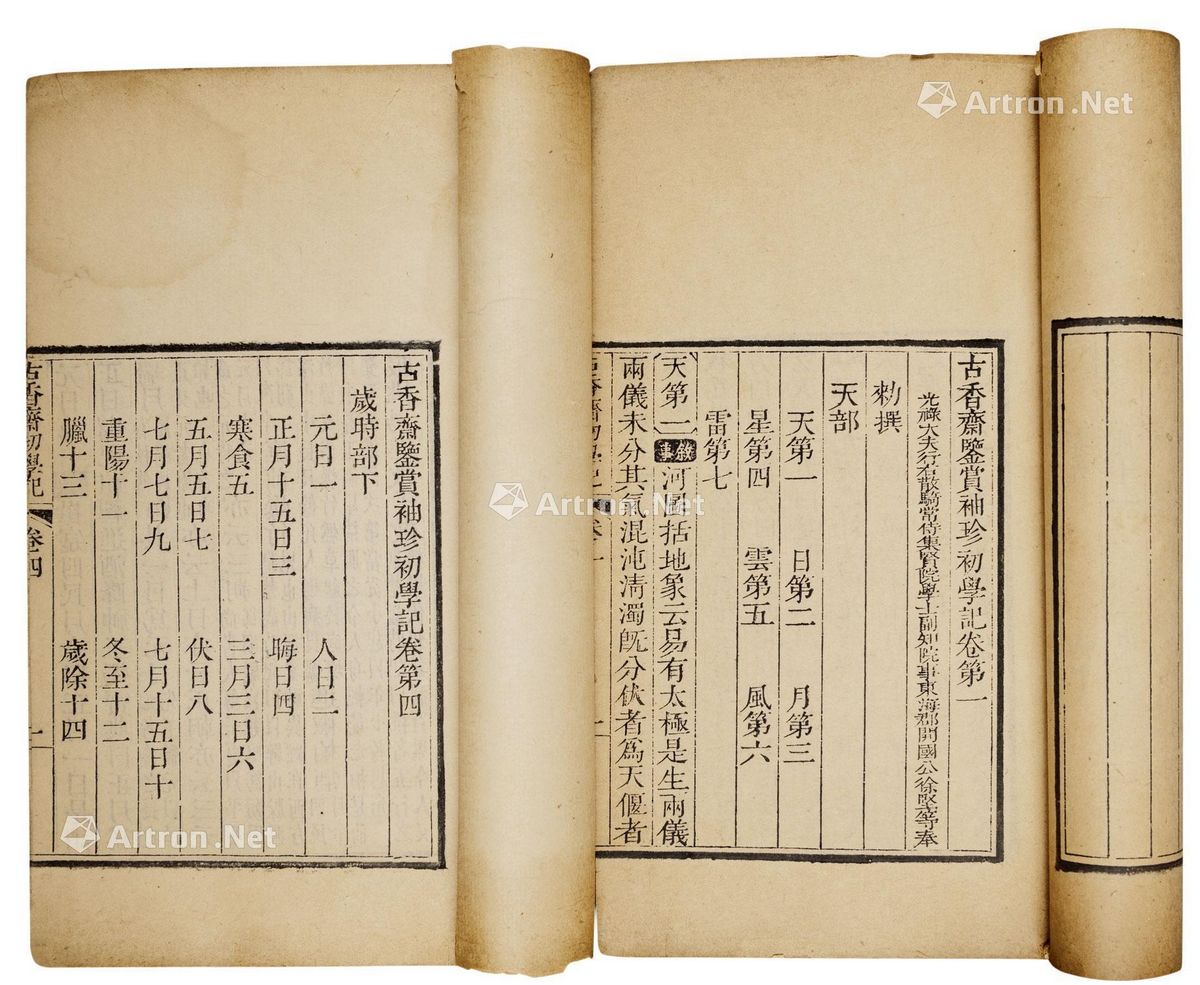 古香齋鑒賞袖珍初學記卷第一
光祿大夫行右散騎常侍集賢院學士副知院事東海郡開國公徐堅等奉
勑撰
天部
天第一 日第二 月第三
星第四 雲第五 風第六
雷第七
天第一 敘事 河圖括地象云易有太極是生兩儀
兩儀未分其氣混沌清濁既分伏者爲天偃者
古香齋初學記 卷一 一
古香齋鑒賞袖珍初學記卷第四
歲時部下
元日一 人日二
正月十五日三 晦日四
寒食五 三月三日六
五月五日七 伏日八
七月七日九 七月十五日十
重陽十一 冬至十二
臘十三 歲除十四
古香齋初學記 卷四 一
Artron.Net
Artron.Net
Artron.Net